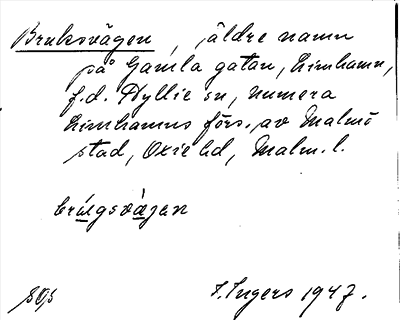 Bruksvägen, äldre namn
på Gamla gatan, Limhamn,
f.d. Hyllie sn, numera
Limhamns förs. av Malmö
stad, Oxie hd, Malm. l.
brúgsvàjen
I. Ingers 1947.